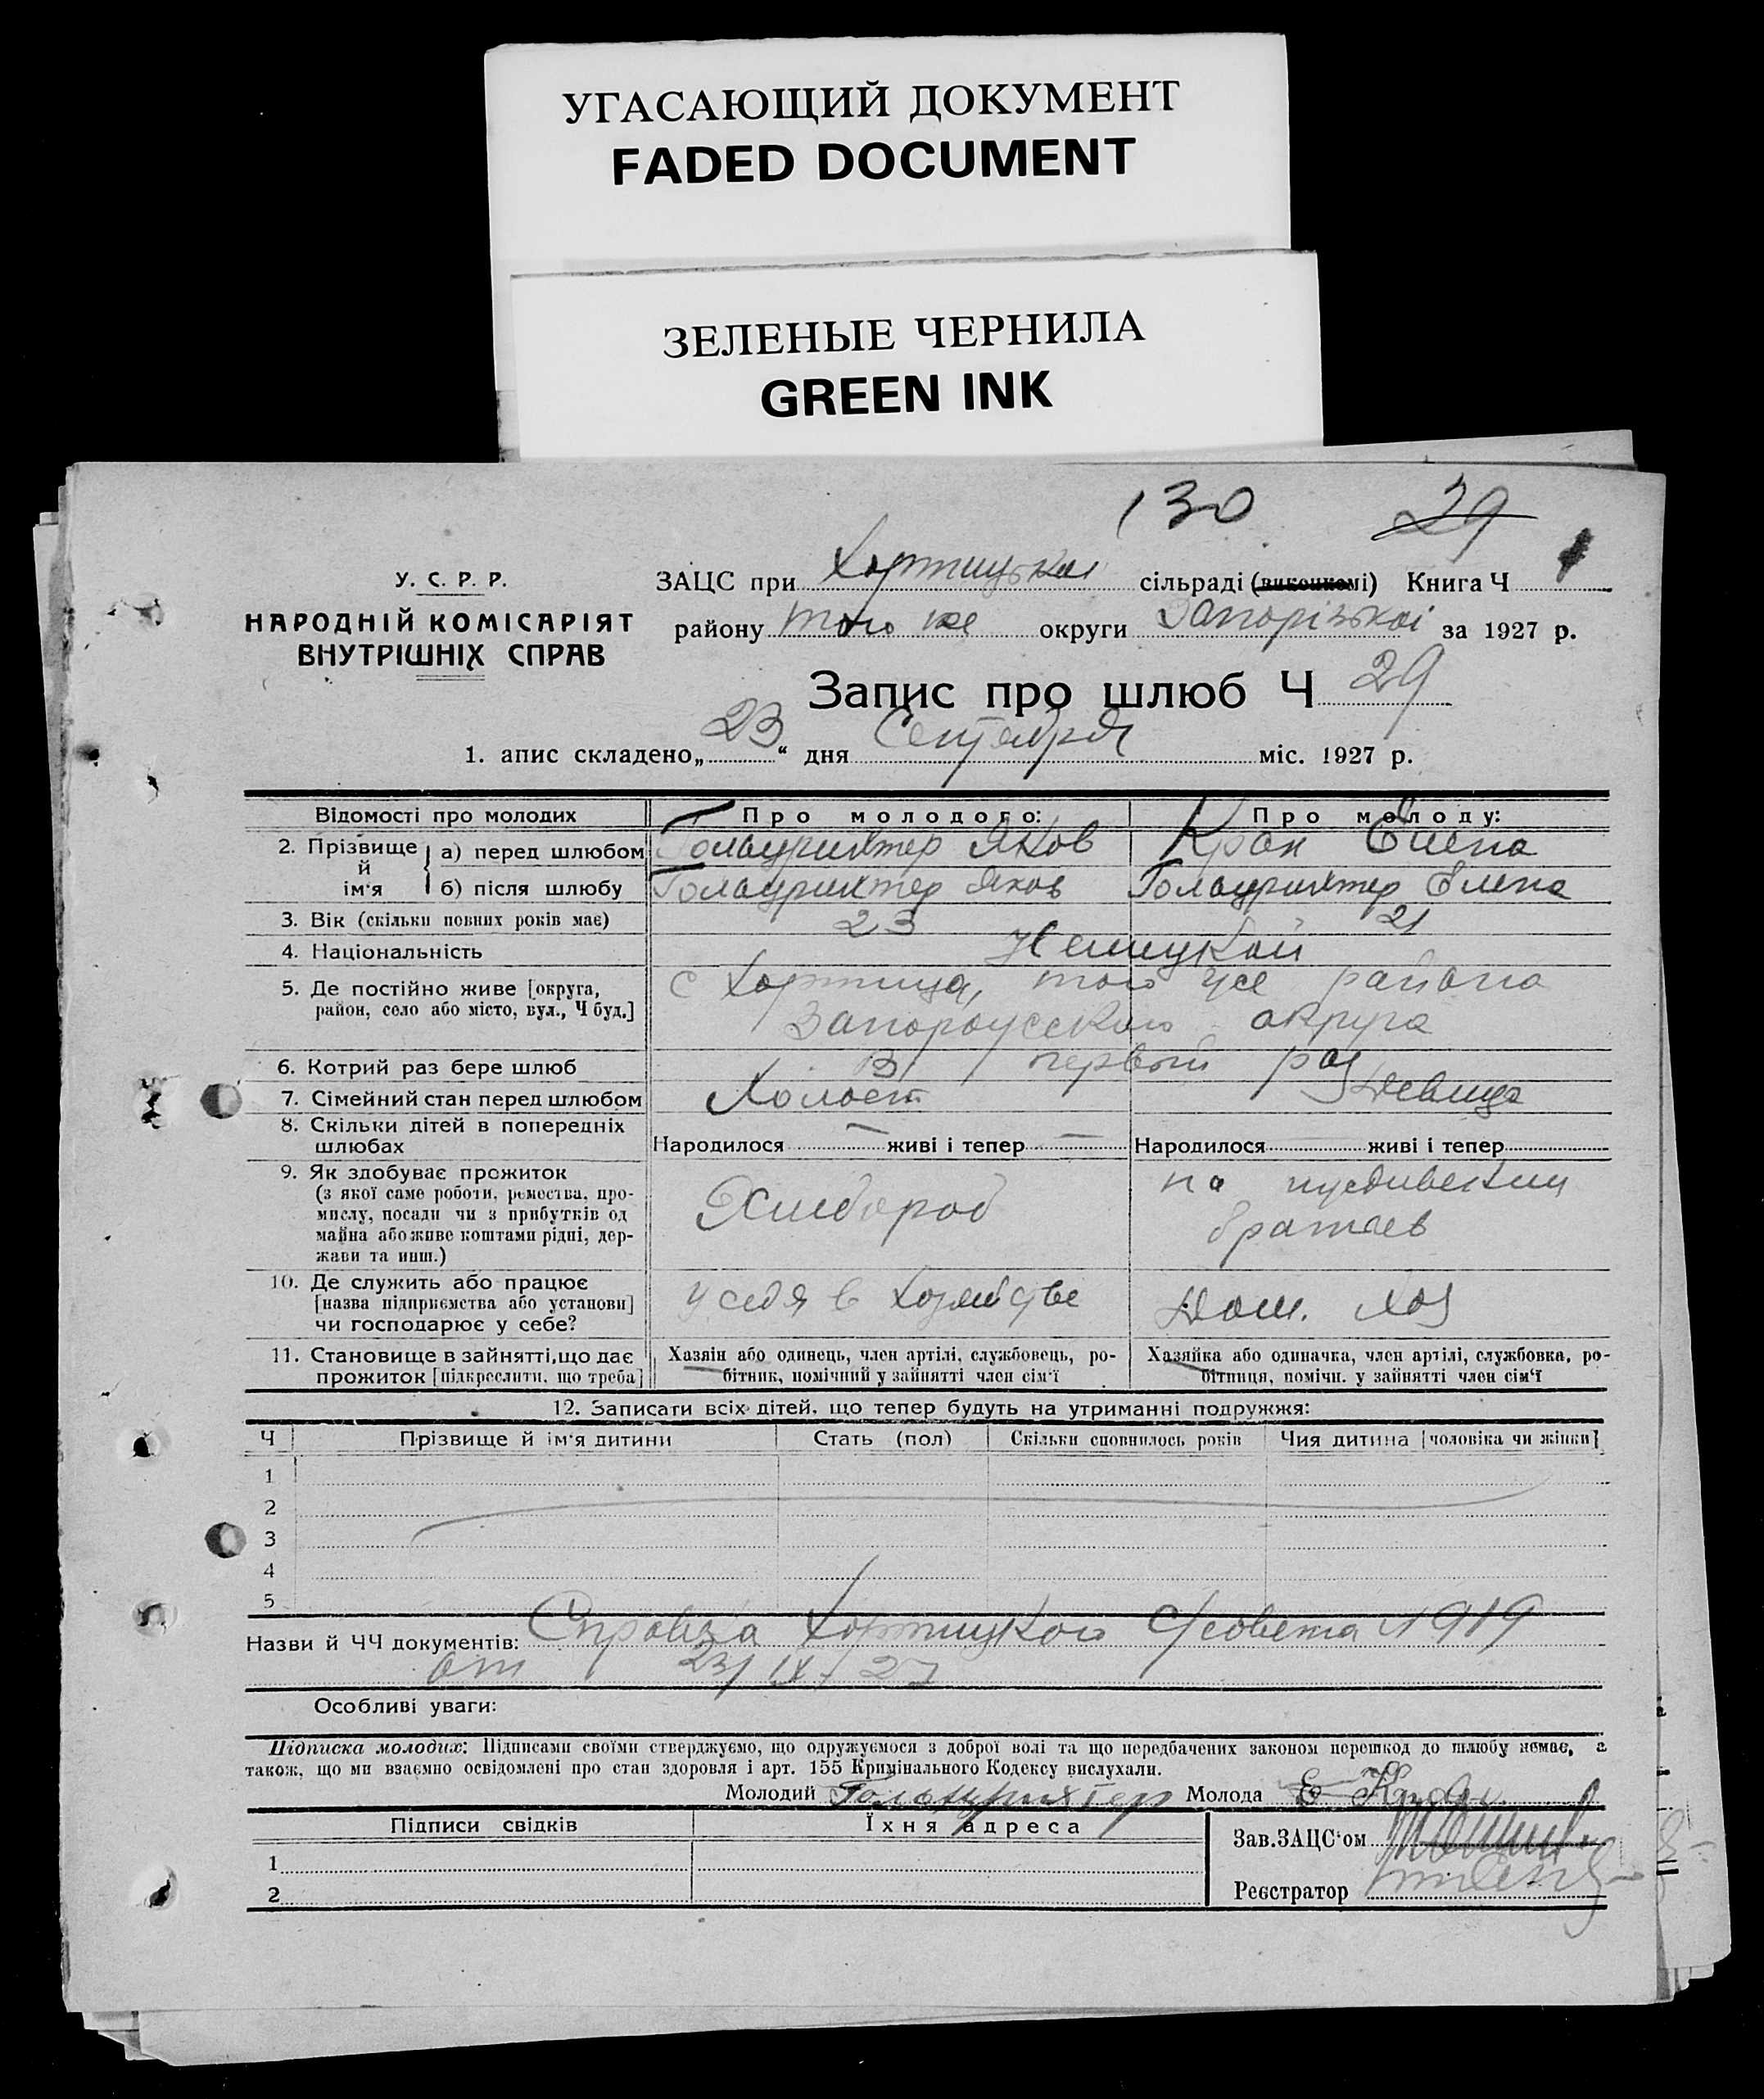 УГАСАЮЩИЙ ДОКУМЕНТ
FADED DOCUMENT
ЗЕЛЕНЫЕ ЧЕРНИЛА
GREEN INK
130 29
У. С. Р. Р.
НАРОДНІЙ КОМІСАРІЯТ
ВНУТРІШНІХ СПРАВ
ЗАЦС при Хортицькой сільраді (виконкомі) Книга Ч
району того же округи Запорізькоі за 1927 р.
Запис про шлюб Ч 29
1. апис складено „23“ дня Сентября міс. 1927 р.
Відомості про молодих Про молодого: Про молоду:
2. Прізвище й ім'я а) перед шлюбом Голцрихтер Яков Кран Елена
б) після шлюбу Голцрихтер Яков Голцрихтер Елена
3. Вік (скільки повних років має) 23 21
4. Національність Немецкой
5. Де постійно живе [округа, район, село або місто, вул., Ч буд.] с Хортица, того же района
Запорожского округа
6. Котрий раз бере шлюб В первый раз
7. Сімейний стан перед шлюбом Холост Девица
8. Скільки дітей в попередніх шлюбах Народилося — живі і тепер — Народилося живі і тепер
9. Як здобуває прожиток
(з якої саме роботи, ремества, промислу, посади чи з прибутків од майна або живе коштами рідні, держави та инш.) Хлебороб на иждивении братьев
10. Де служить або працює
[назва підприємства або установи]
чи господарює у себе? У себя в хозяйстве Дом. хоз
11. Становище в зайнятті, що дає прожиток [підкреслити, що треба] Хазяїн або одинець, член артілі, службовець, робітник, помічний у зайнятті член сім'ї Хазяйка або одиначка, член артілі, службовка, робітниця, помічн. у зайнятті член сім'ї
12. Записати всіх дітей, що тепер будуть на утриманні подружжя:
Ч Прізвище й ім'я дитини Стать (пол) Скільки сповнилось років Чия дитина [чоловіка чи жінки]
1
2
3
4
5
Назви й ЧЧ документів: Справка Хортицкого с/совета N 919
от 23/IX/27
Особливі уваги:
Підписка молодих: Підписами своїми стверджуємо, що одружуємося з доброї волі та що передбачених законом перешкод до шлюбу немає, а
також, що ми взаємно освідомлені про стан здоровля і арт. 155 Кримінального Кодексу вислухали.
Молодий Гольцрихтер Молода Е Кран
Підписи свідків Їхня адреса
Зав.ЗАЦС'ом
1
Реєстратор
2